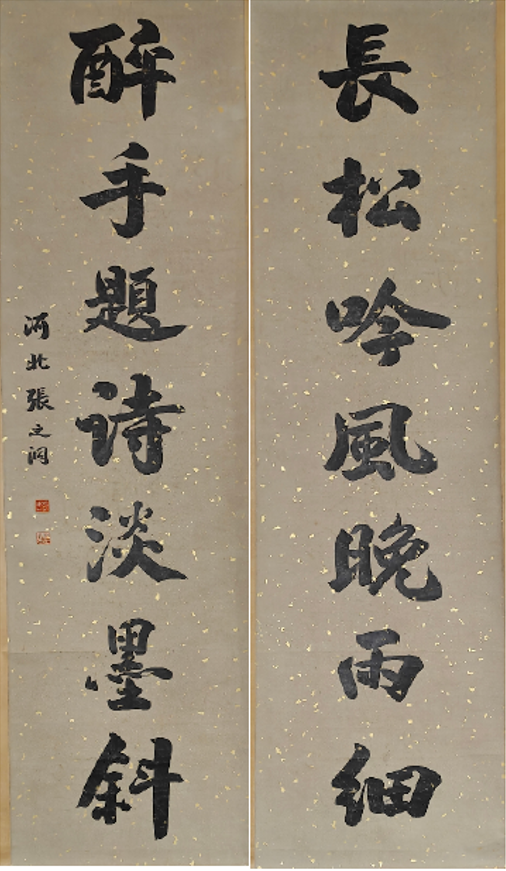 長松吟風晚雨細
醉手題詩淡墨斜
河北張之洞